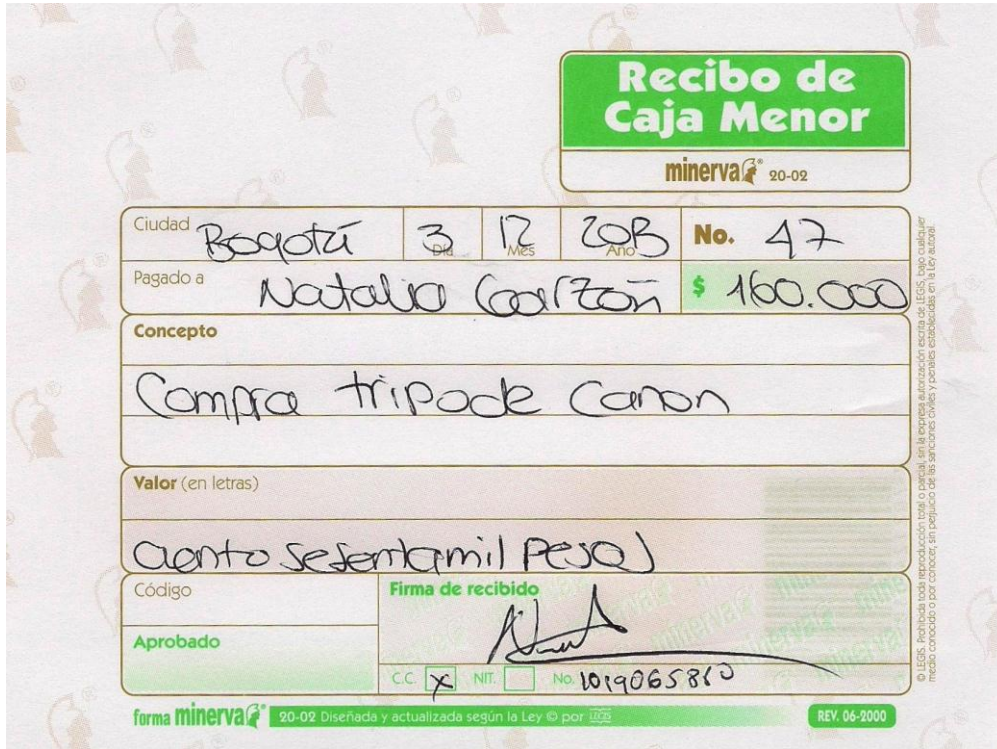 Recibo de
Caja Menor
minerva® 20-02
Ciudad Bogotá 3 Día 12 Mes 2013 Año No. 47
Pagado a Natalia Garzón $ 160.000
Concepto
Compra tripode Canon
Valor (en letras)
ciento sesenta mil pesos
Código
Firma de recibido
Aprobado
C.C. x NIT. No. 1019065860
forma minerva® 20-02 Diseñada y actualizada según la Ley © por LEGIS REV. 06-2000
© LEGIS. Prohibida toda reproducción total o parcial, sin la expresa autorización escrita de LEGIS, bajo cualquier
medio conocido o por conocer, sin perjuicio de las sanciones civiles y penales establecidas en la Ley autoral.